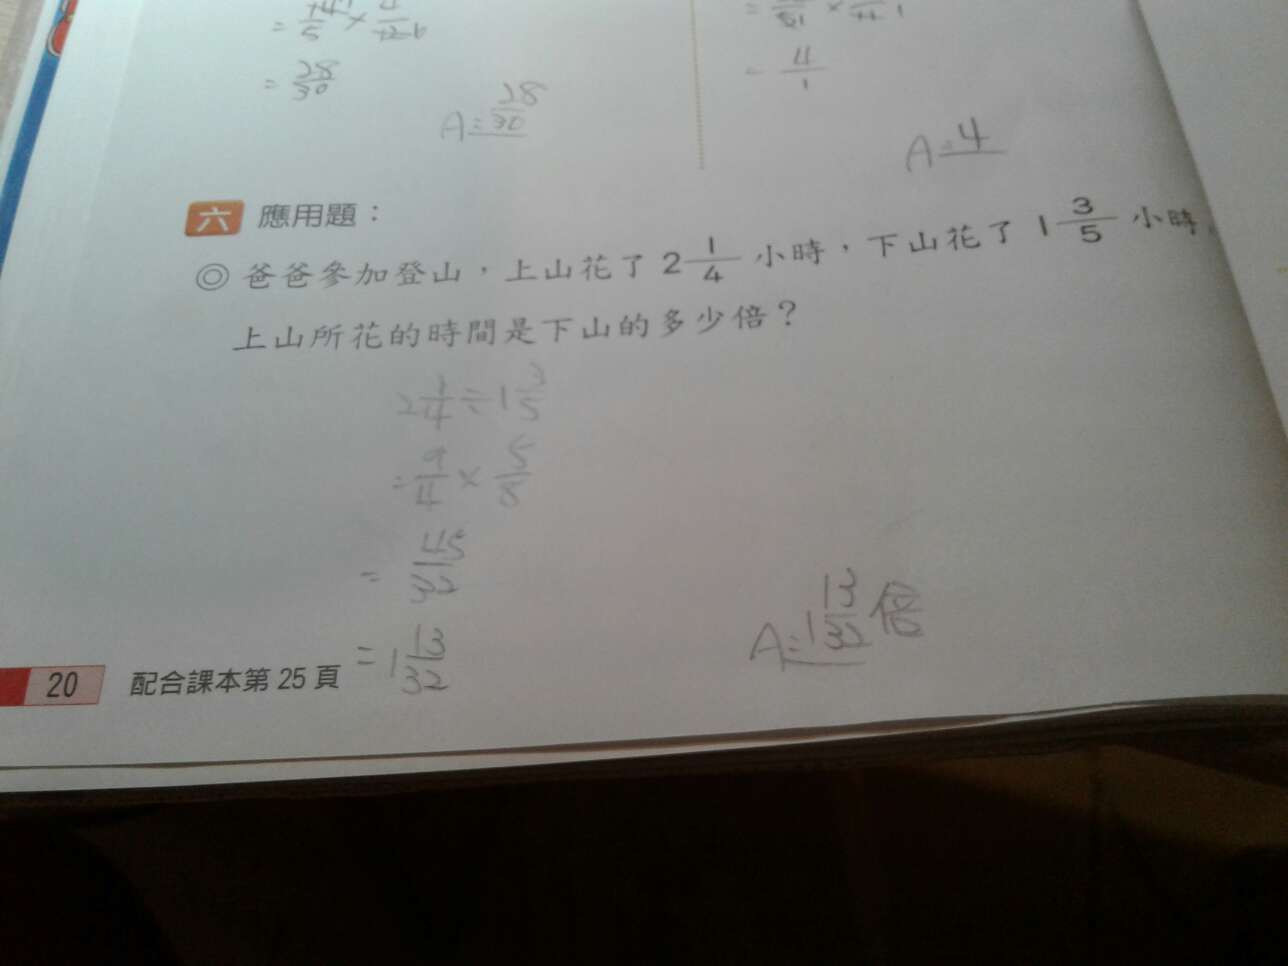 = 28/30
A = 28/30
= 4/1
A = 4
六 應用題：
◎ 爸爸參加登山，上山花了 2 1/4 小時，下山花了 1 3/5 小時，
上山所花的時間是下山的多少倍？
2 1/4 ÷ 1 3/5
= 9/4 × 5/8
= 45/32
= 1 13/32
A = 1 13/32 倍
20 配合課本第 25 頁